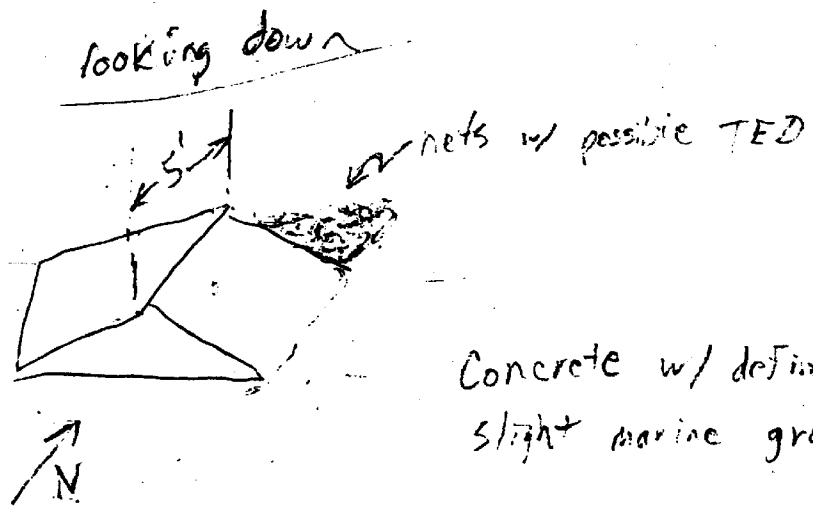 looking down
5'
nets w/ possible TED
Concrete w/
slight marine
N